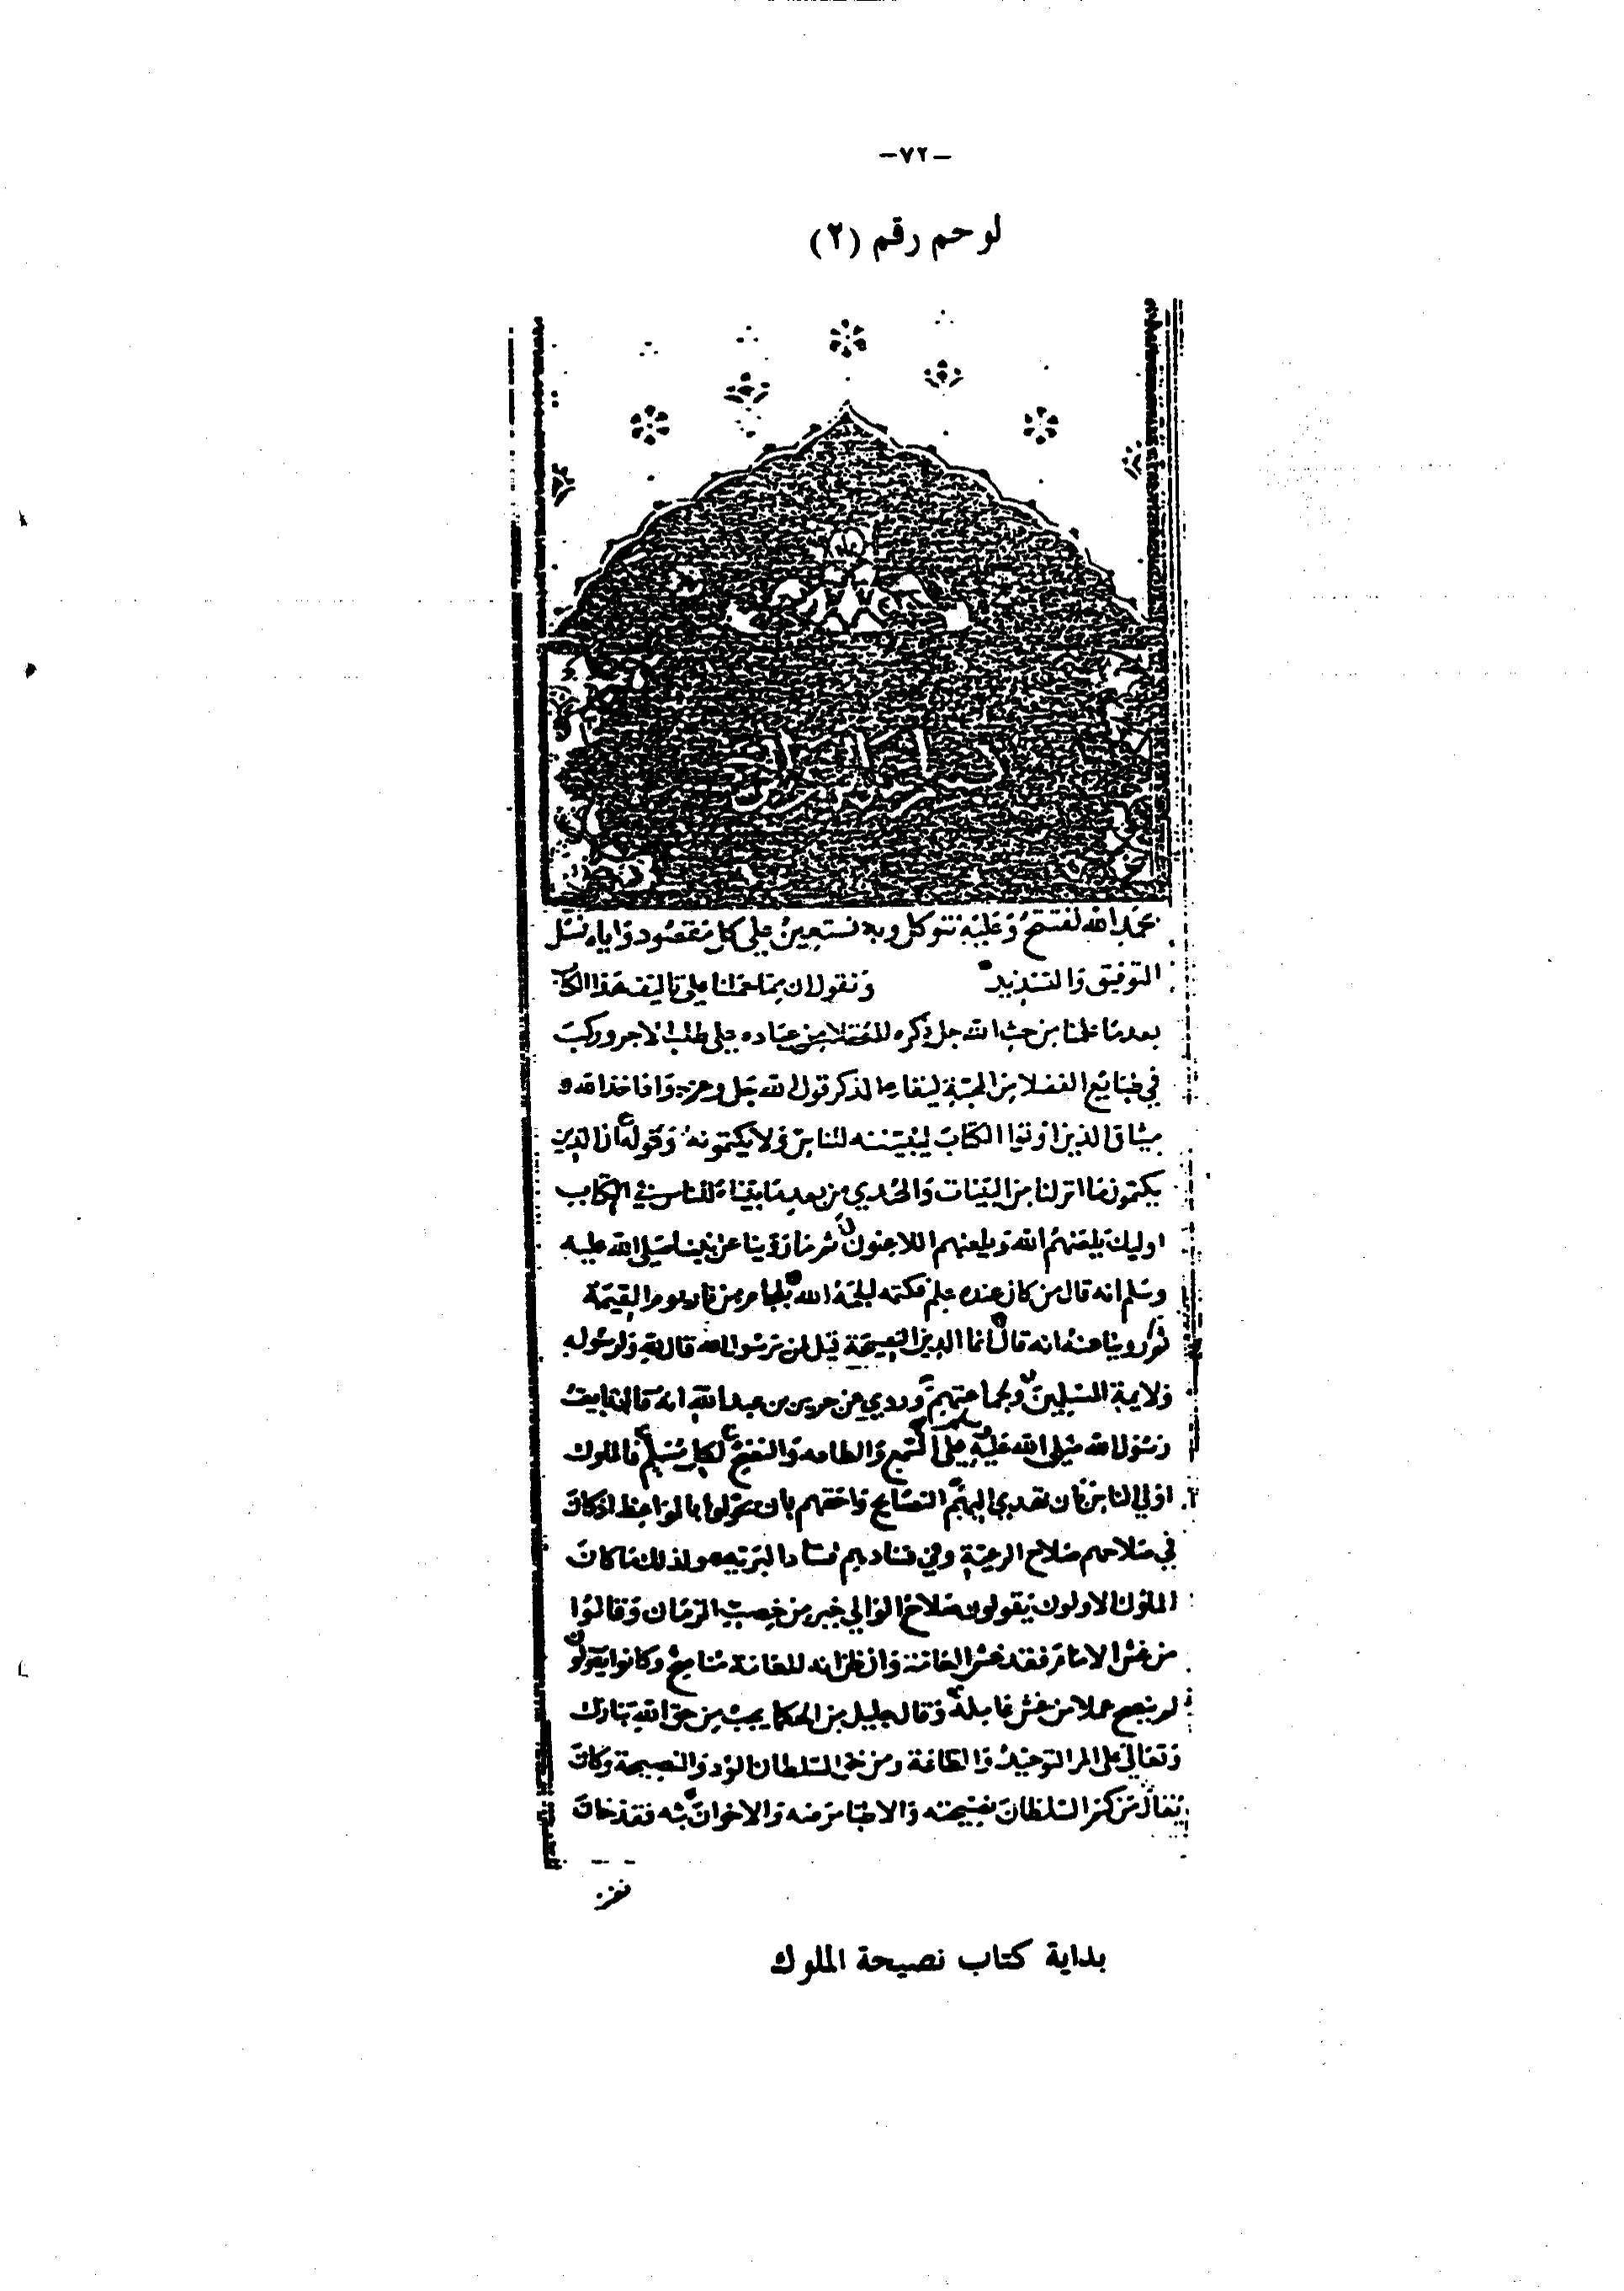 -٧٢-
لوحم رقم (٢)
بحمد الله نفتتح وعليه نتوكل وبه نستعين على كل مقصود واياه نسل
التوفيق والتسديد ونقول ان مما حملنا على تاليف هذا الكتاب
بعدما علمنا من حث الله جل ذكره للعقلا من عباده على طلب الاجر وركب
في طبايع الفضلا من المحبة لبقا الذكر قول الله جل وعز واذ اخذ الله
ميثاق الذين اوتوا الكتاب ليبيننه للناس ولا يكتمونه وقوله ان الذين
يكتمون ما انزلنا من البينات والهدي من بعد ما بيناه للناس في الكتاب
اوليك يلعنهم الله ويلعنهم اللاعنون ثم ما روينا عن نبينا صلى الله عليه
وسلم انه قال من كان عنده علم فكتمه الجمه الله بلجام من نار يوم القيمة
ثم روينا عنه انه قال انما الدين النصيحة قيل لمن يرسول الله قال لله ولرسوله
ولايمة المسلمين ولجماعتهم وروي عن جرير بن عبد الله انه قال بايعت
رسول الله صلى الله عليه وسلم على السمع والطاعه والنصح لكل مسلم فالملوك
اولي الناس بان تهدي اليهم النصايح واحقهم بان يخولوا بالمواعظ اذ كان
في صلاحهم صلاح الرعية وفي فسادهم فساد البريه ولذلك ما كان
الملوك الاولون يقولون صلاح الوالي خير من خصب الزمان وقالوا
من غش الامام فقد غش العامة وان ظن انه للعامة مناصح وكانوا يقولون
لم ينصح عملا من غش عامله وقال جليل من الحكما يجب من حق الله تبارك
وتعالى على المر التوحيد والطاعة ومن حق السلطان الود والنصيحة وكان
يقال من كتم السلطان نصيحته والاطبا مرضه والاخوان بثه فقد خان
بداية كتاب نصيحة الملوك